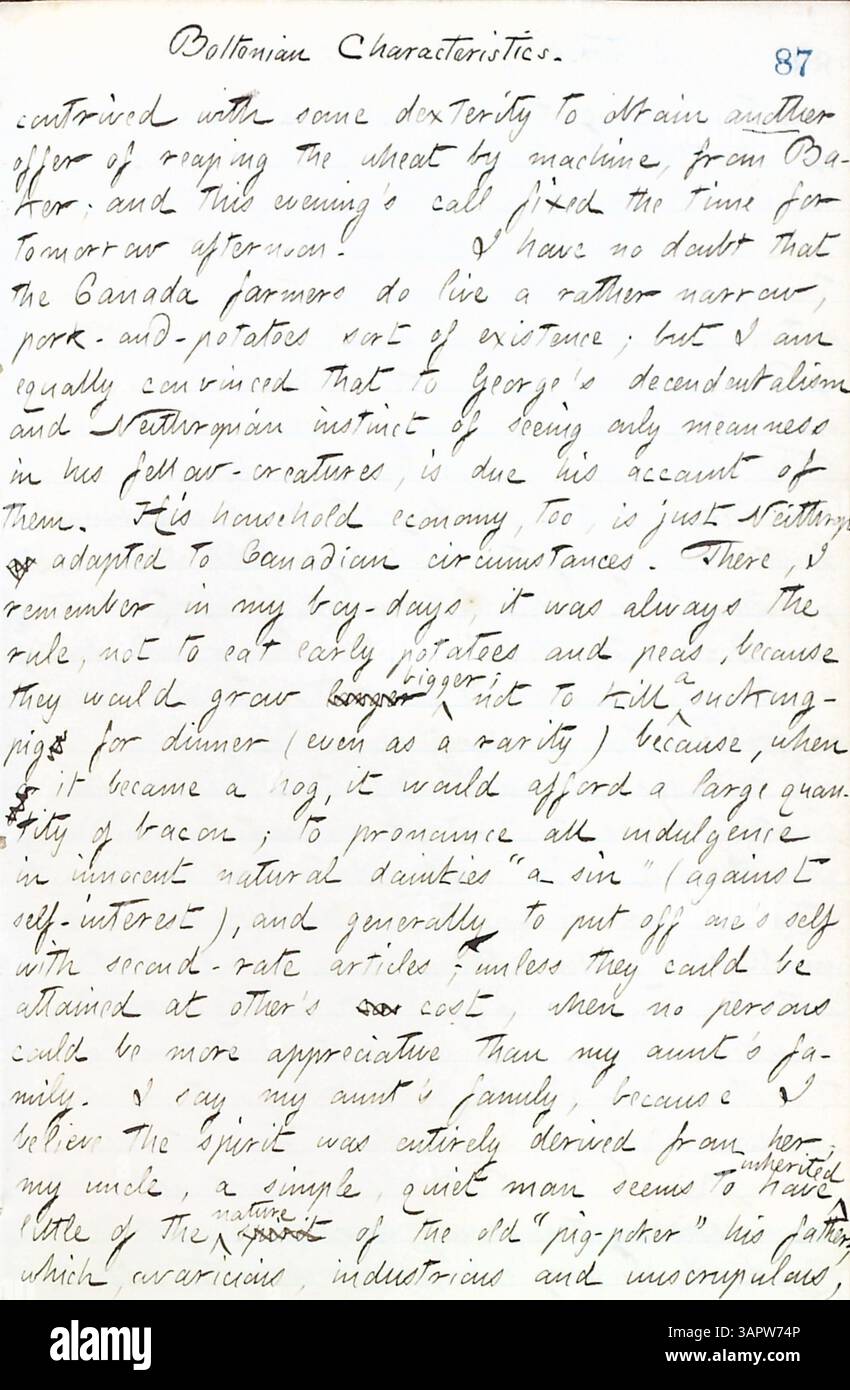 Boltonian Characteristics.
87
contrived with some dexterity to obtain another
offer of reaping the wheat by machine, from Ba-
ker; and this evening's call fixed the time for
tomorrow afternoon. I have no doubt that
the Canada farmers do live a rather narrow,
pork-and-potatoes sort of existence; but I am
equally convinced that to George's decendentalism
and Neithropian instinct of seeing only meanness
in his fellow-creatures, is due his account of
them. His household economy, too, is just Neithrop
adapted to Canadian circumstances. There, I
remember in my boy-days, it was always the
rule, not to eat early potatoes and peas, because
they would grow bigger; not to kill a sucking-
pig for dinner (even as a rarity) because, when
it became a hog, it would afford a large quan-
tity of bacon; to pronounce all indulgence
in innocent natural dainties "a sin" (against
self-interest), and generally to put off one's self
with second-rate articles; unless they could be
attained at other's cost, when no persons
could be more appreciative than my aunt's fa-
mily. I say my aunt's family, because I
believe the spirit was entirely derived from her;
my uncle, a simple, quiet man seems to have inherited
little of the nature spirit of the old "pig-poker" his father,
which, avaricious, industrious and unscrupulous,
alamy
Image ID: 3APW74P
www.alamy.com